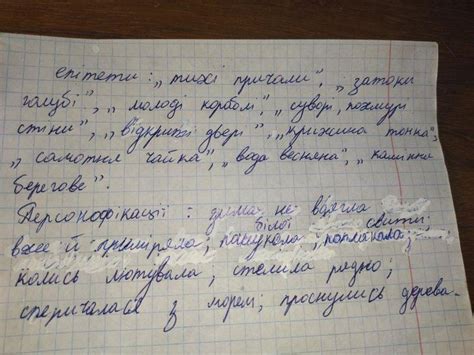 епітети: „тихі причали", „затоки
голубі", „молоді кораблі", „суворі, похмурі
стіни", „відкриті двері", „крижина тонка",
„самотня чайка", „вода весняна", „каміння
берегове".
Персонофікації: зима не вдягла
білої свити;
вже й приміряла, поплакала;
колись лютувала; стелила рядно;
сперичалася з морем; проснулись дерева.